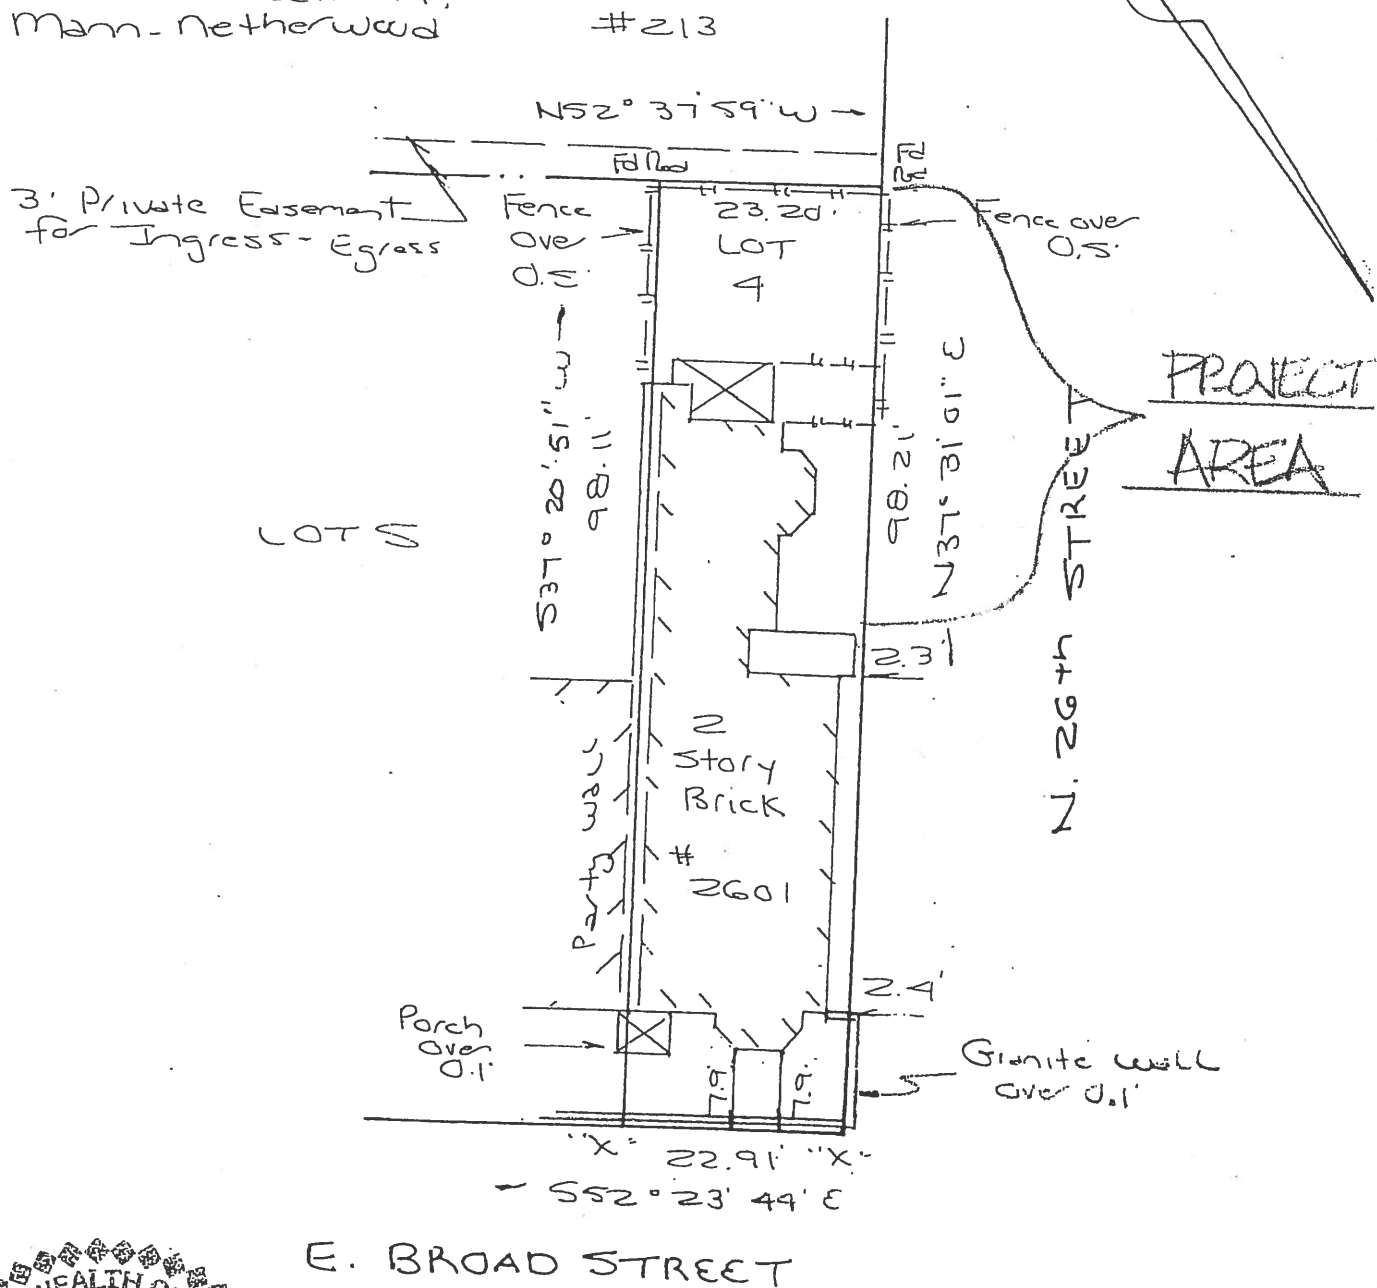 Mann-Netherwood #213
N52° 37' 59" W
Fd Rod
Fd
3' Private Easement
for Ingress-Egress
Fence
Over
0.5'
23.20'
LOT
4
Fence over
0.5'
S37° 20' 51" W
98.11'
98.21'
N37° 31' 01" E
N. 26th STREET
PROJECT
AREA
LOT 5
2.3'
2
Story
Brick
#
2601
Party Wall
2.4'
Porch
Over
0.1'
7.9'
7.9'
Granite Wall
Over 0.1'
"X" 22.91' "X"
S52° 23' 44" E
E. BROAD STREET